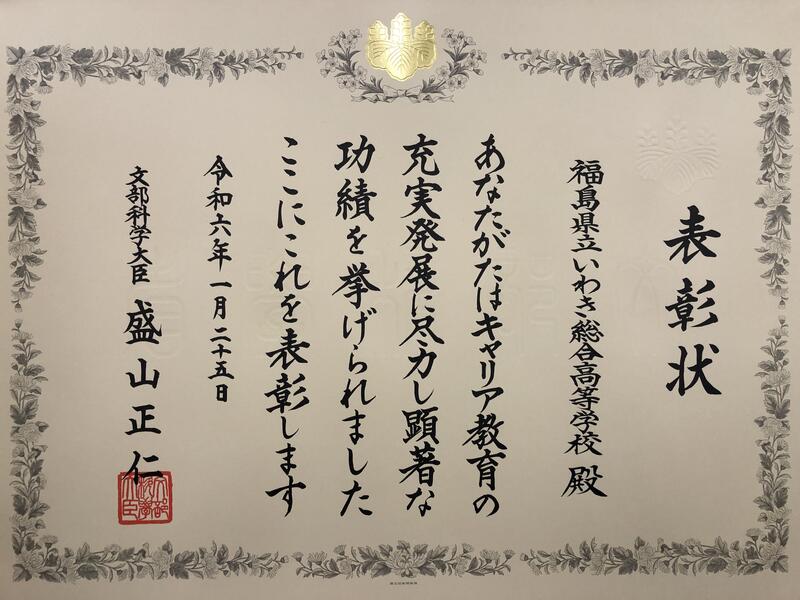 表彰状
福島県立いわき総合高等学校 殿
あなたがたはキャリア教育の
充実発展に尽力し顕著な
功績を挙げられました
ここにこれを表彰します
令和六年一月二十五日
文部科学大臣 盛山正仁